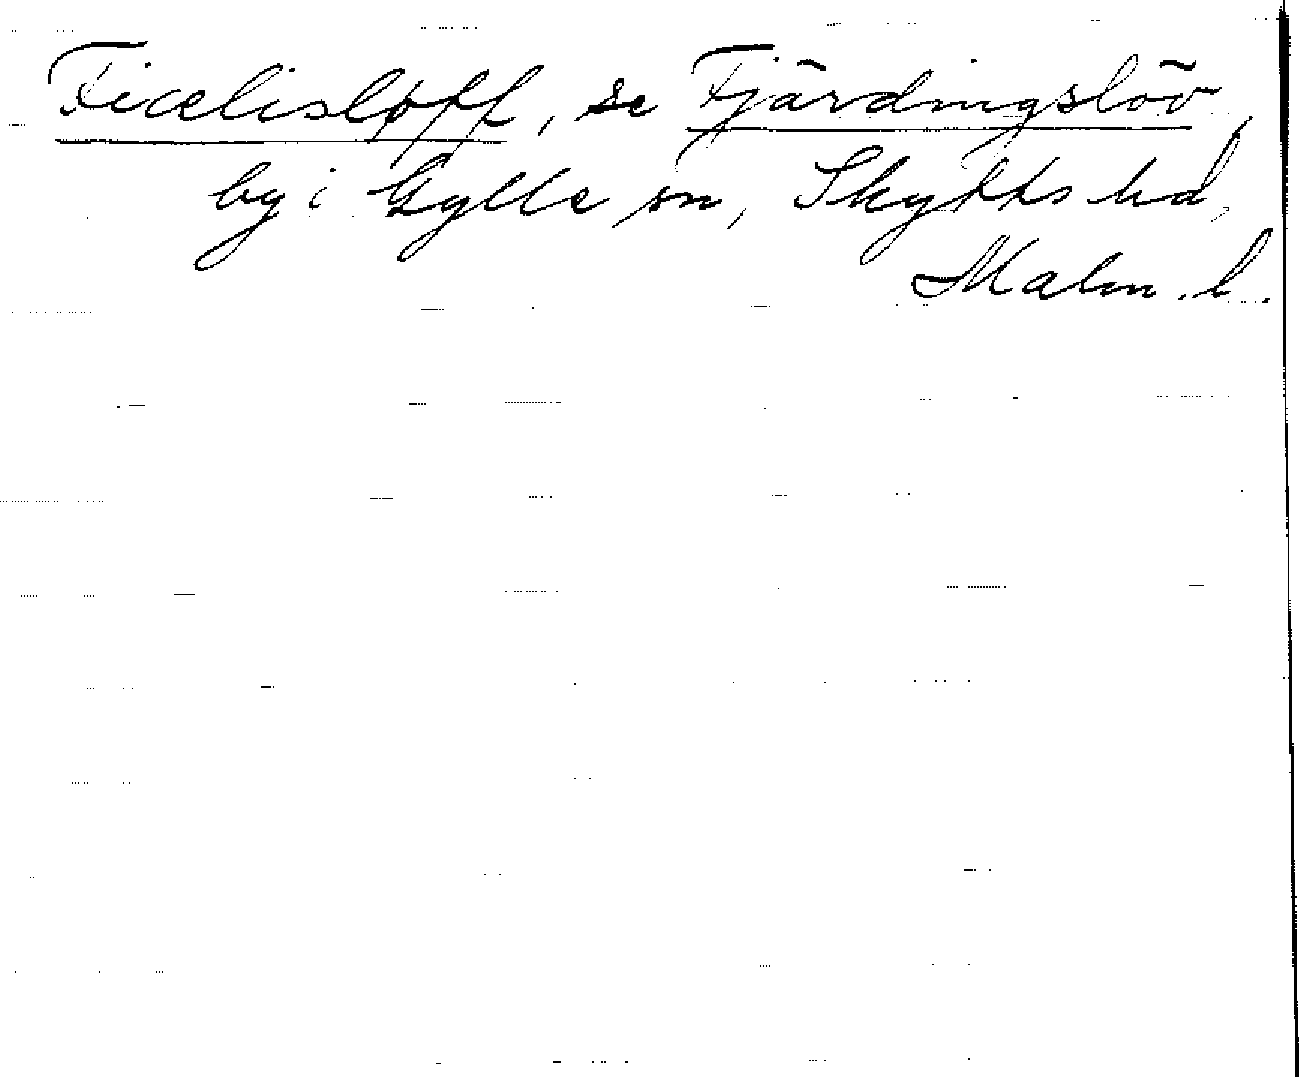 Ficelisløff, se Fjärdingslöv,
by i Gylle sn, Skytts hd,
Malm. l.